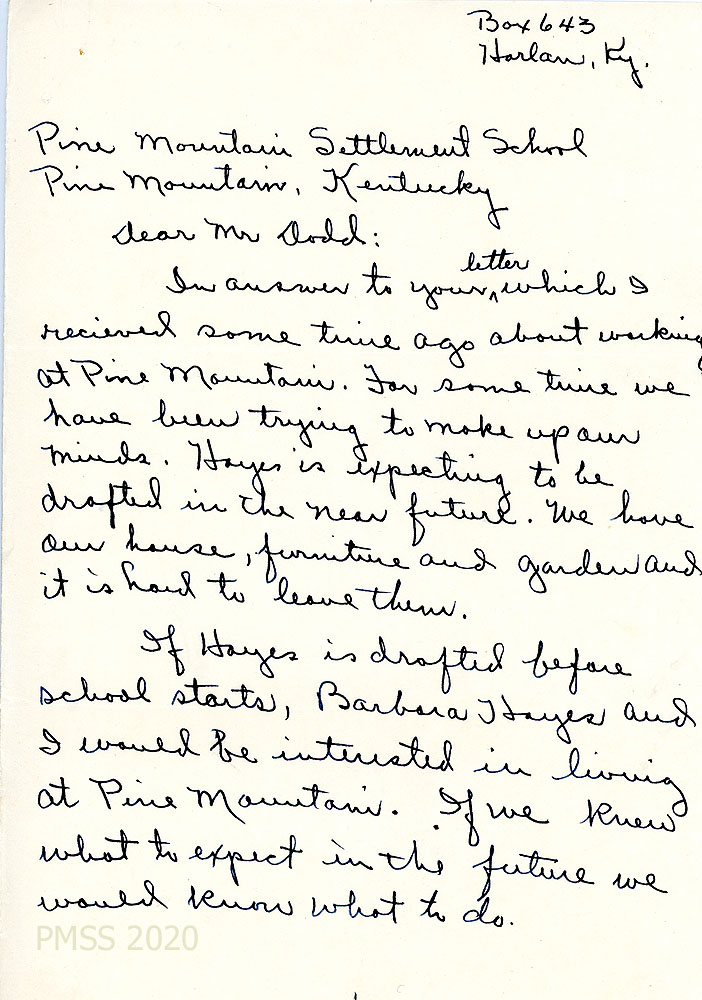 Box 643
Harlan, Ky.
Pine Mountain Settlement School
Pine Mountain, Kentucky
Dear Mr Dodd:
In answer to your letter which I
recieved some time ago about working
at Pine Mountain. For some time we
have been trying to make up our
minds. Hayes is expecting to be
drafted in the near future. We have
our house, furniture and garden and
it is hard to leave them.
If Hayes is drafted before
school starts, Barbara Hayes and
I would be interested in living
at Pine Mountain. If we knew
what to expect in the future we
would know what to do.
PMSS 2020